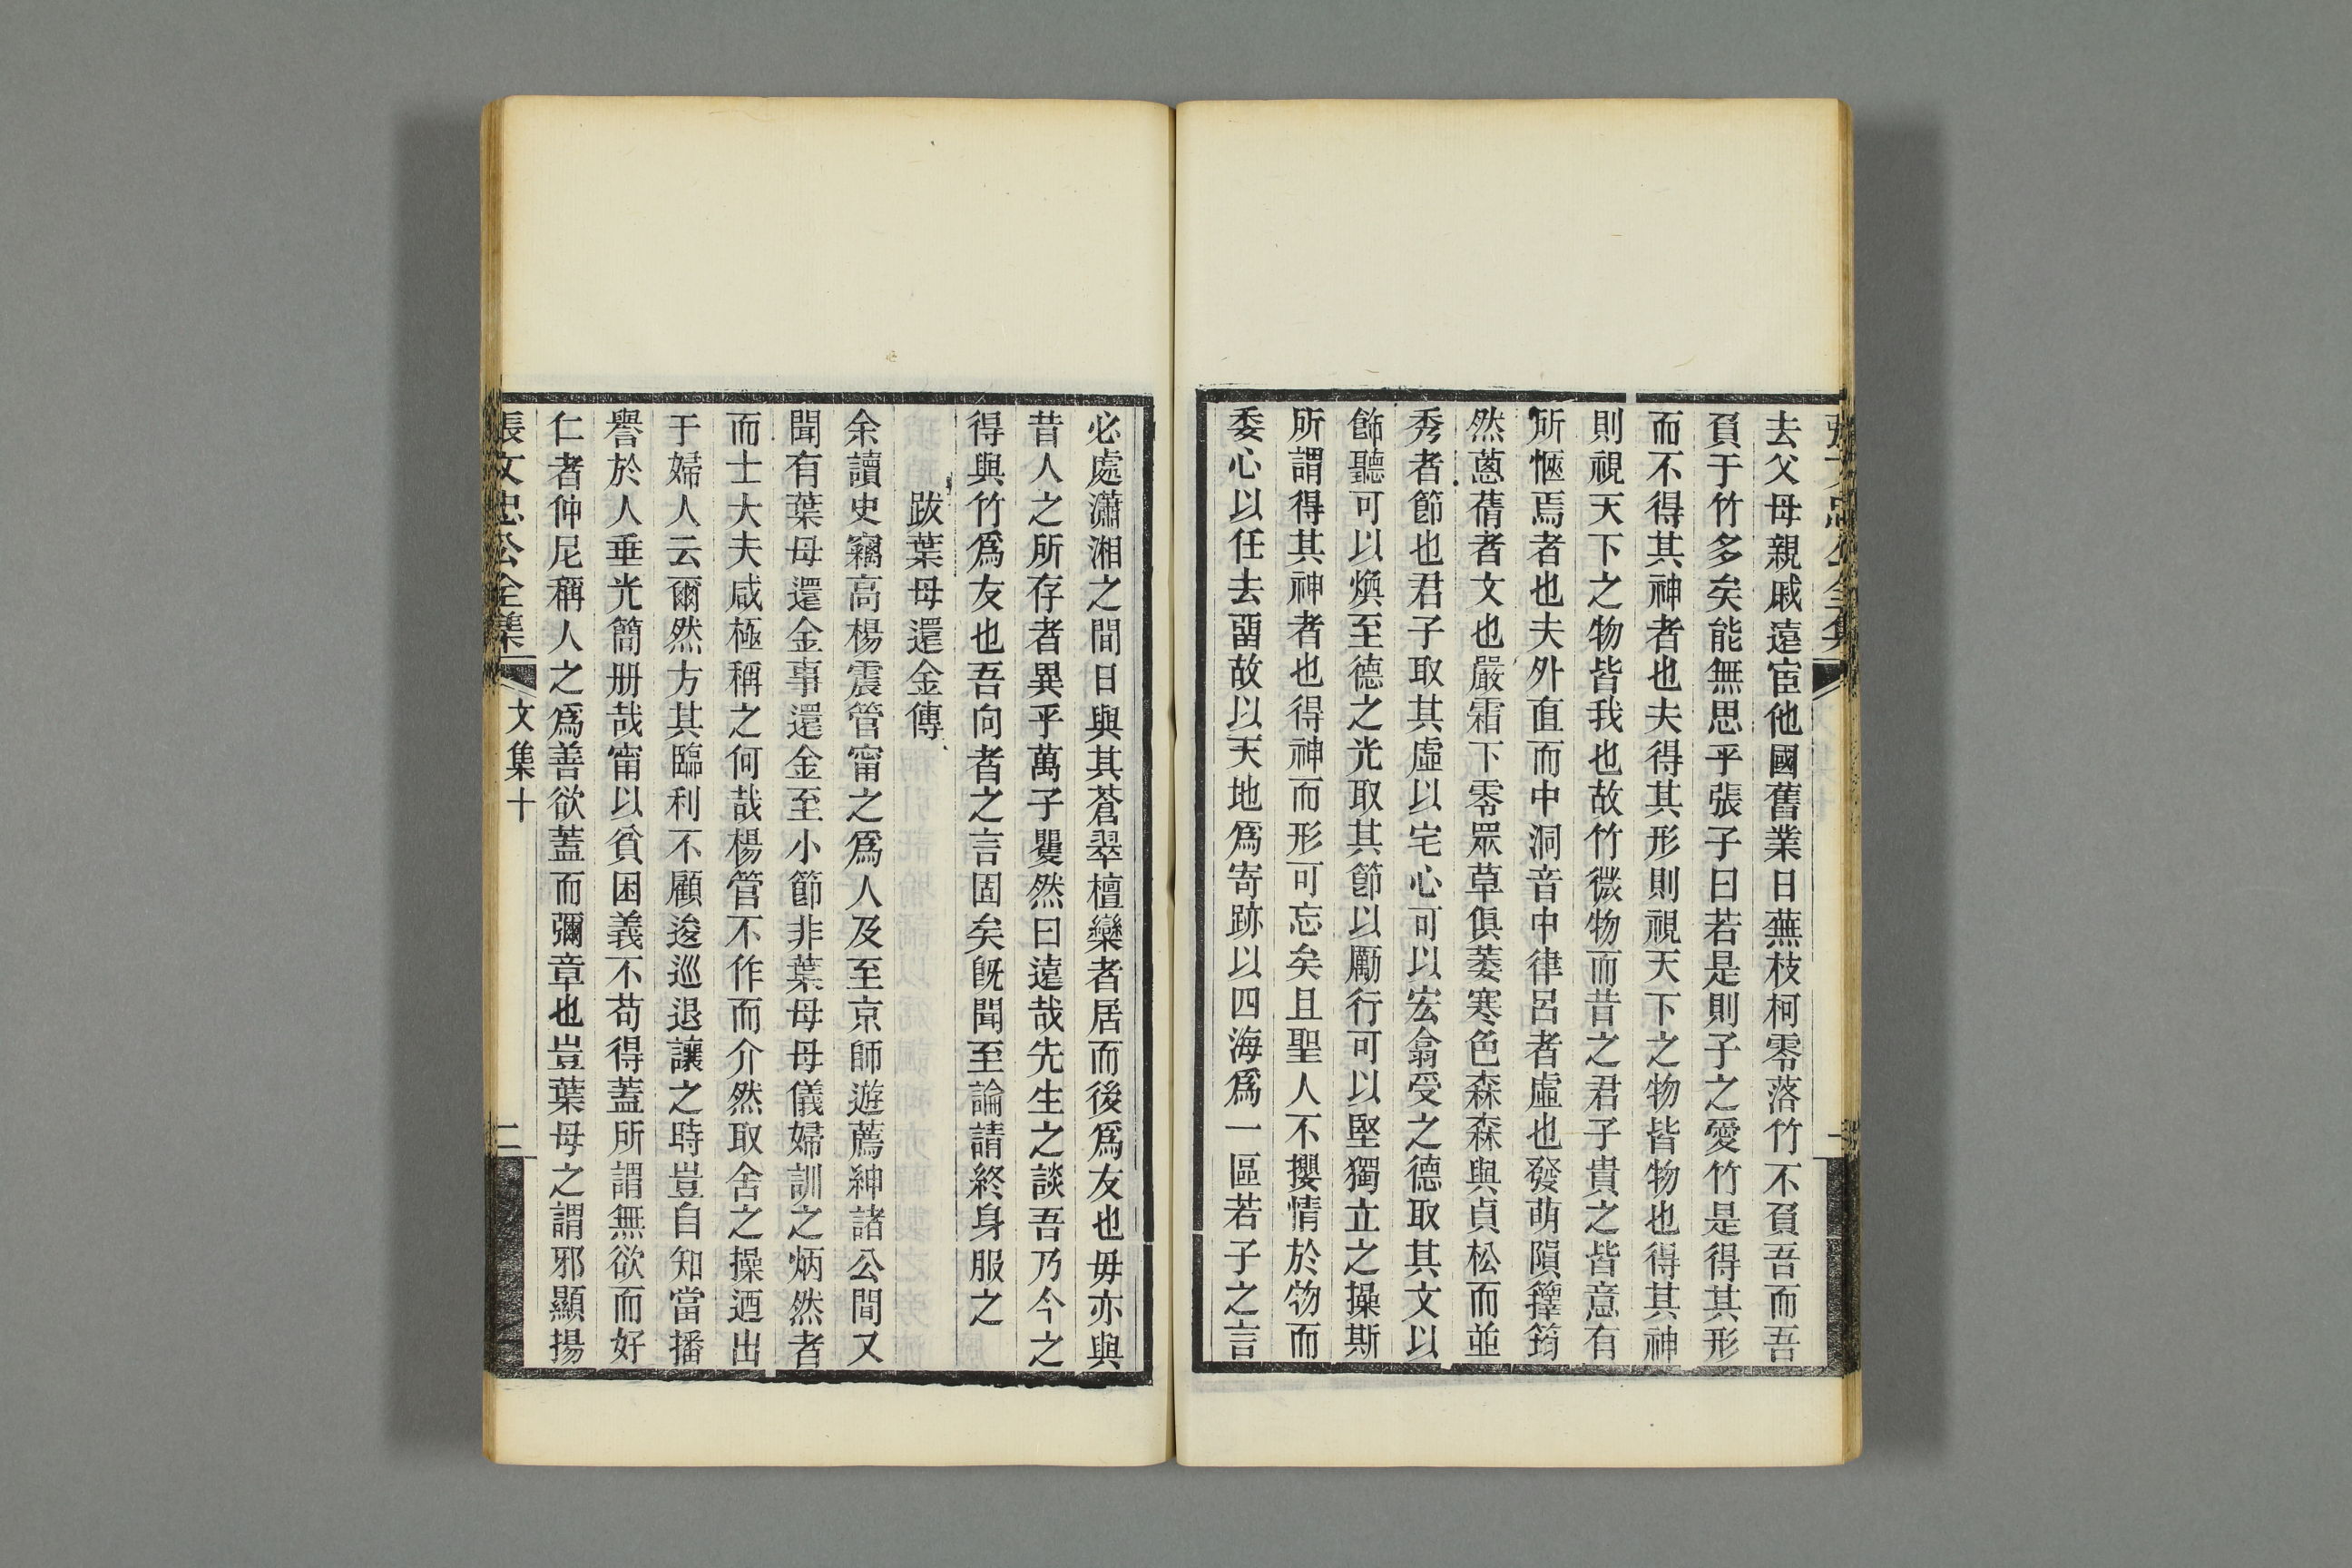 去父母親戚遠宦他國舊業日蕪枝柯零落竹不負吾而吾
負于竹多矣能無思乎張子曰若是則子之愛竹是得其形
而不得其神者也夫得其形則視天下之物皆物也得其神
則視天下之物皆我也故竹微物而昔之君子貴之皆意有
所愜焉者也夫外直而中洞音中律呂者虛也發萌隕籜筠
然蔥蒨者文也嚴霜下零眾草俱萎寒色森森與貞松而並
秀者節也君子取其虛以宅心可以宏翕受之德取其文以
飾聽可以煥至德之光取其節以勵行可以堅獨立之操斯
所謂得其神者也得神而形可忘矣且聖人不攖情於物而
委心以任去畱故以天地爲寄跡以四海爲一區若子之言
必處瀟湘之間日與其蒼翠檀欒者居而後爲友也毋亦與
昔人之所存者異乎萬子矍然曰遠哉先生之談吾乃今之
得與竹爲友也吾向者之言固矣旣聞至論請終身服之
跋葉母還金傳
余讀史竊高楊震管甯之爲人及至京師遊薦紳諸公間又
聞有葉母還金事還金至小節非葉母母儀婦訓之炳然者
而士大夫咸極稱之何哉楊管不作而介然取舍之操迺出
于婦人云爾然方其臨利不顧逡巡退讓之時豈自知當播
譽於人垂光簡册哉甯以貧困義不苟得蓋所謂無欲而好
仁者仲尼稱人之爲善欲蓋而彌章也豈葉母之謂邪顯揚
張文忠公全集
文集十
二